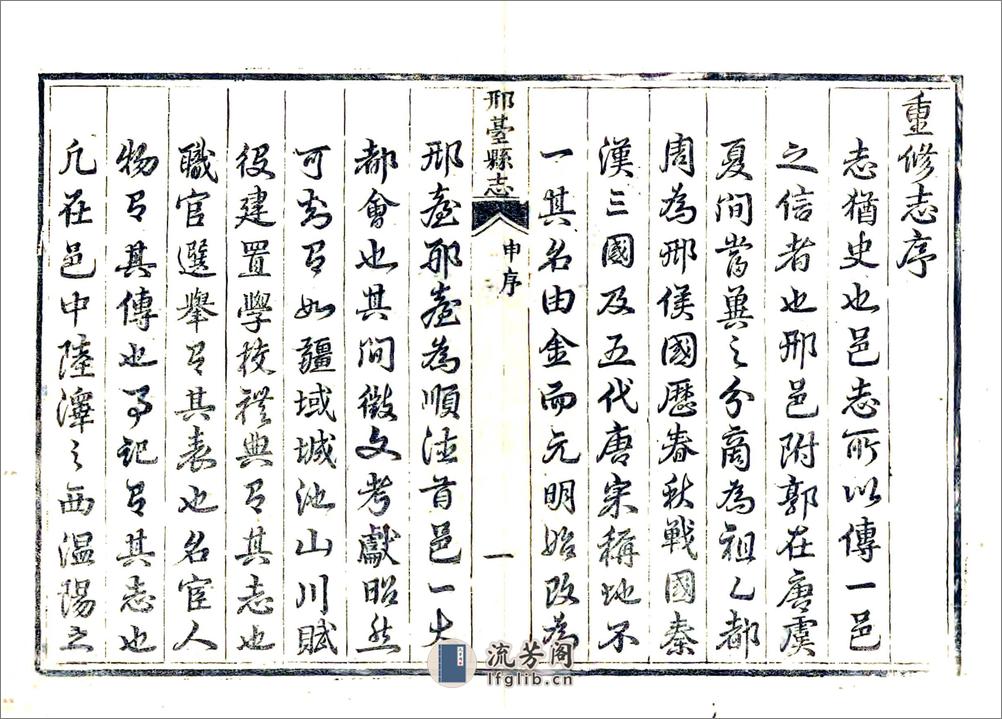 重修志序
志猶史也邑志所以傳一邑
之信者也邢邑附郭在唐虞
夏間嘗冀之分商為祖乙都
周為邢侯國歷春秋戰國秦
漢三國及五代唐宋稱地不
一其名由金而元明始改為
邢臺縣志
申序
一
邢臺邢臺為順德首邑一大
都會也其間徵文考獻昭然
可知有如疆域城池山川賦
役建置學校禮典有其志也
職官選舉有其表也名宦人
物有其傳也事記有其志也
凡在邑中陸澤之西溫陽之
流芳阁
lfglib.cn